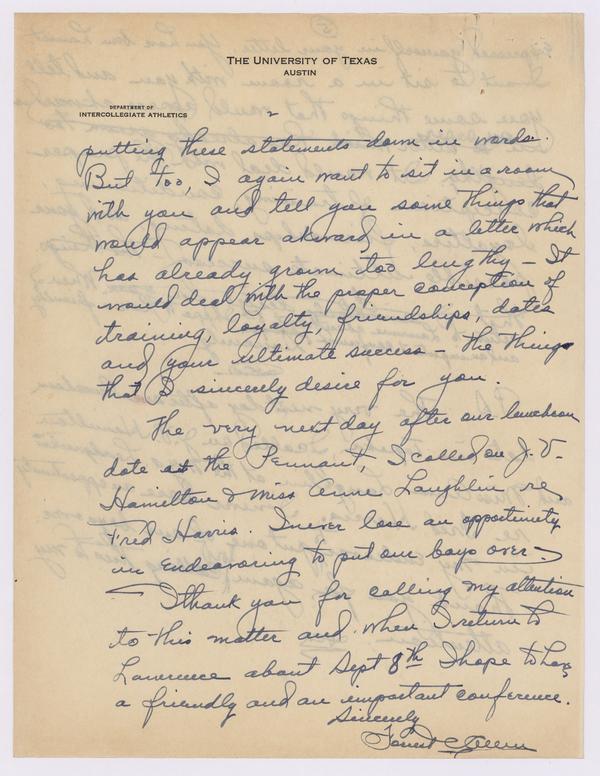 THE UNIVERSITY OF TEXAS
AUSTIN
DEPARTMENT OF
INTERCOLLEGIATE ATHLETICS
2
putting these statements down in words.
But too, I again want to sit in a room
with you and tell you some things that
would appear akward in a letter which
has already grown too lengthy - It
would deal with the proper conception of
training, loyalty, friendships, dates
and your ultimate success - the things
that I sincerely desire for you.
The very next day after our luncheon
date at the Pennant, I called on J. V.
Hamilton & Miss Anne Laughlin re
Fred Harris. I never lose an opportunity
in endeavoring to put our boys over -
I thank you for calling my attention
to this matter and when I return to
Lawrence about Sept 8th I hope to have
a friendly and an important conference.
Sincerely
Forrest C Allen